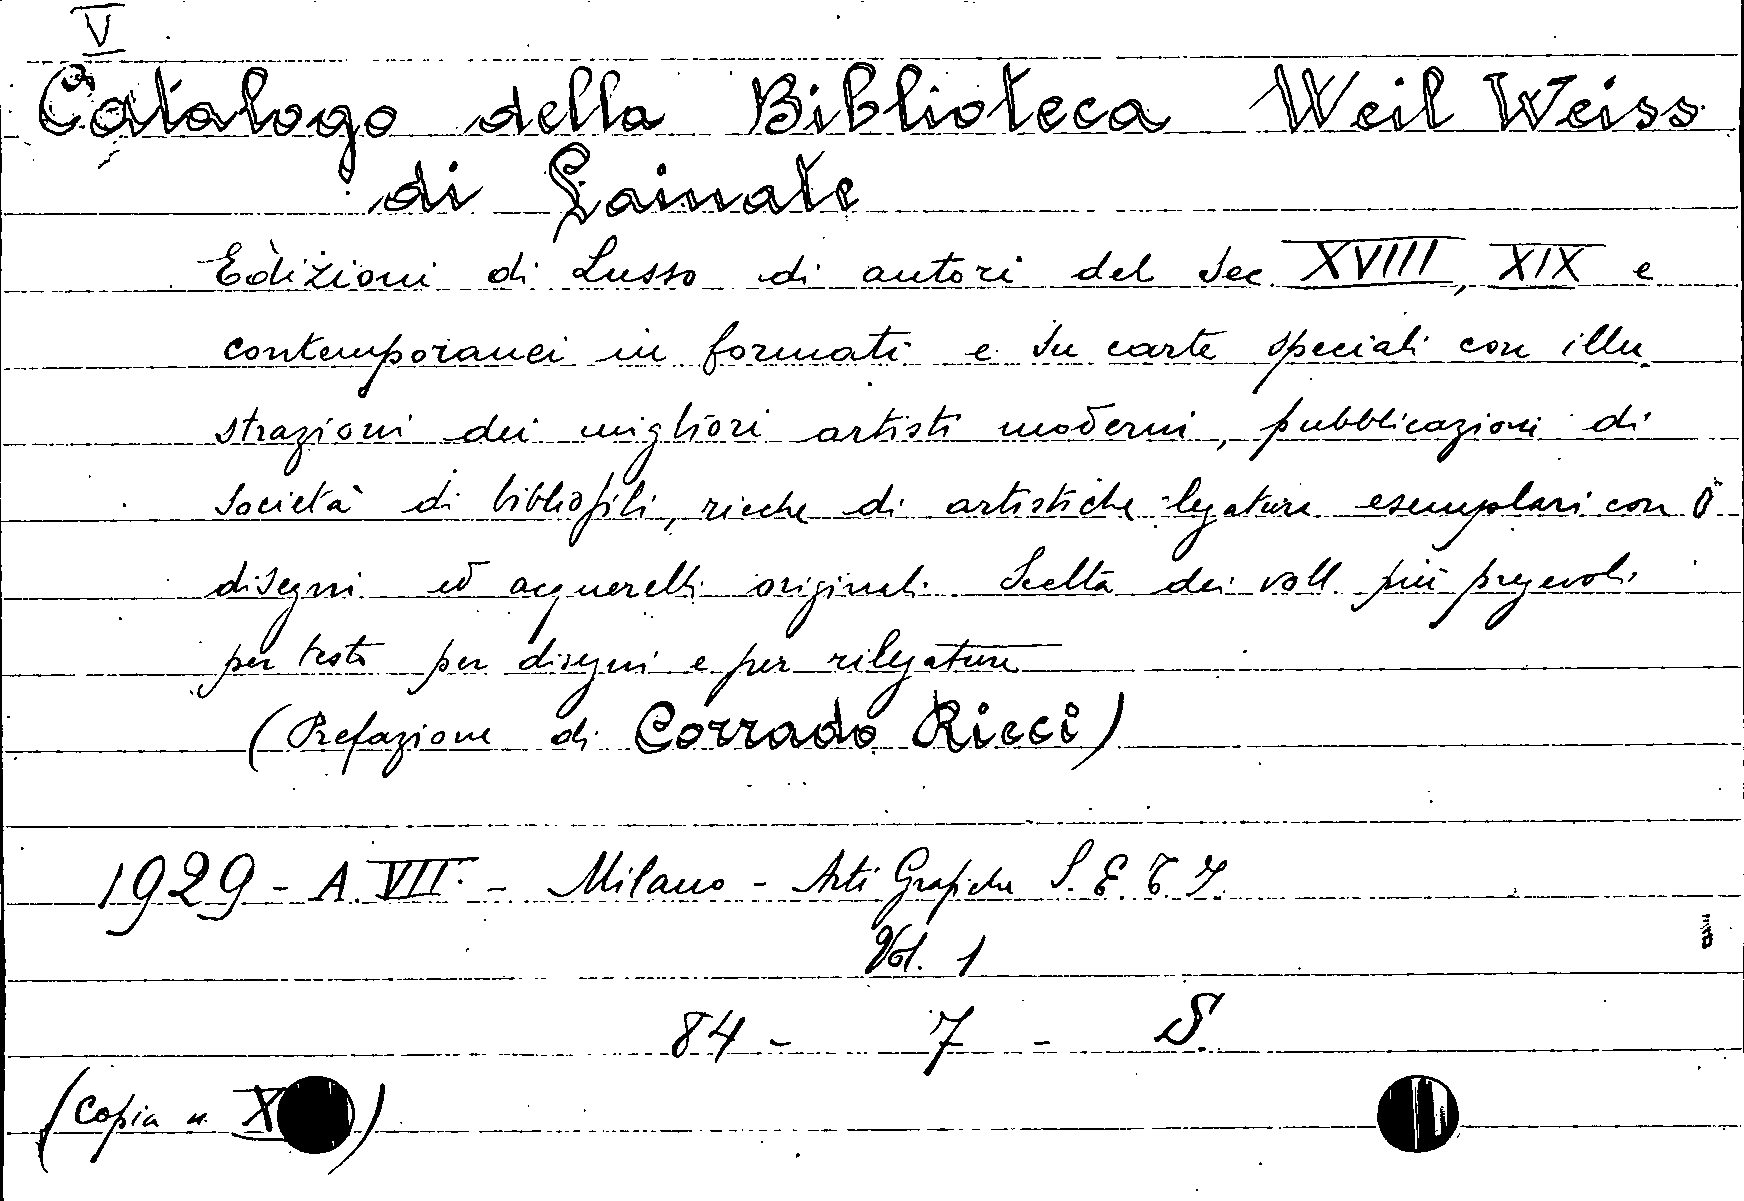 V
Catalogo della Biblioteca Weil Weiss
di Lainate
Edizioni di Lusso di autori del Sec XVIII, XIX e
contemporanei in formati e su carte speciali con illu
strazioni dei migliori artisti moderni, pubblicazioni di
Società di bibliofili, ricche di artistiche legature esemplari con
disegni ed acquerelli originali. Scelta dei voll più pregevoli
per testo per disegni e per rilegature
(Prefazione di Corrado Ricci)
1929 - A. VII. - Milano - Arti Grafiche S. E. T. I.
Vol. 1
84 - 7 - S.
(Copia n. X )